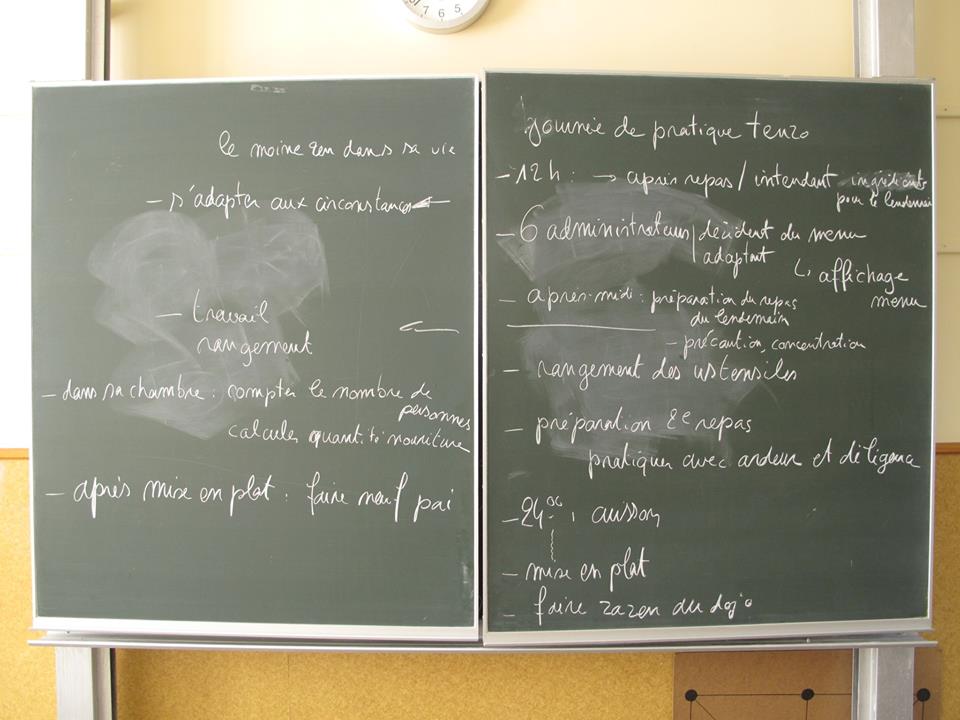 7 6 5
le moine zen dans sa vie
- s'adapter aux circonstances ←
- travail
rangement
←
- dans sa chambre : compter le nombre de
personnes
calculer quantité nouriture
- après mise en plat : faire neuf pai
Journée de pratique tenzo
- 12 h : → après repas / intendant ingrédients
pour le lendemain
- 6 administrateurs / décident du menu
adaptant
↳ affichage
menu
- après-midi : préparation du repas
du lendemain
- précaution, concentration
- rangement des ustensiles
- préparation 2e repas
pratiquer avec ardeur et diligence
- 24 00 :
- mise en plat
- faire zazen du dojo